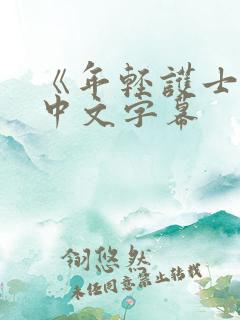 《年轻護士
中文字幕
翎悠然
未经同意禁止转载